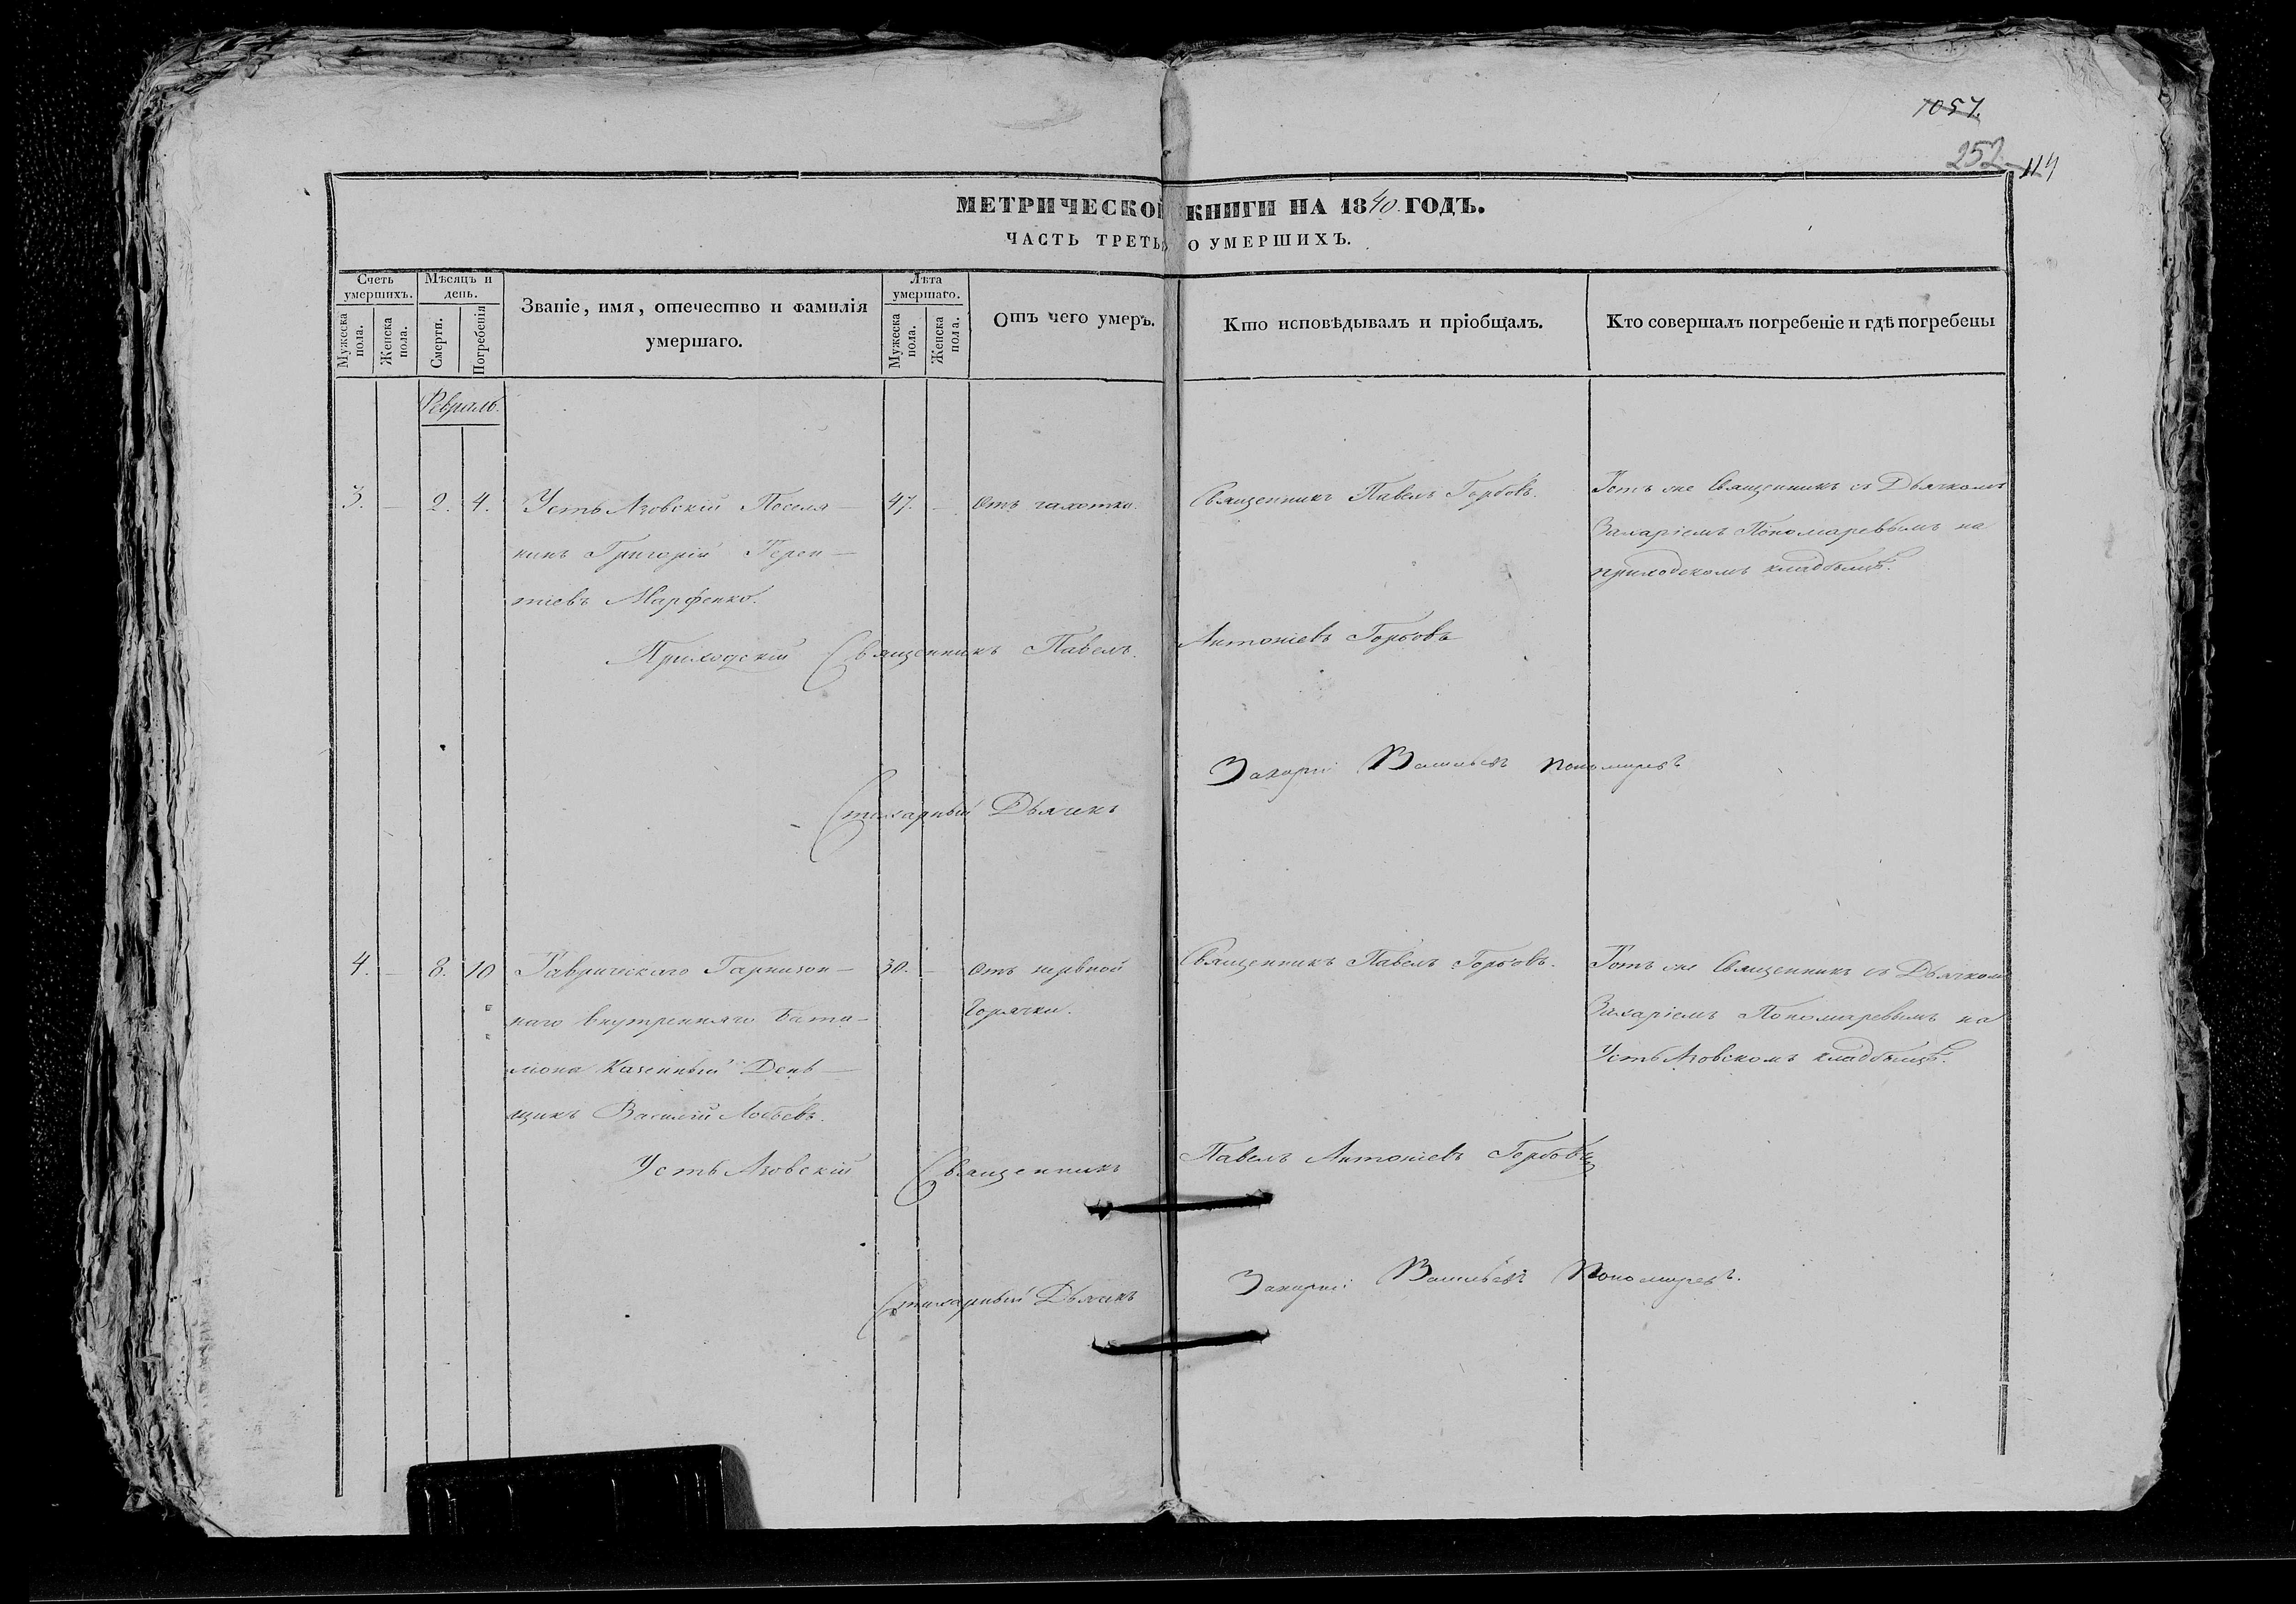 1057.
252
114
МЕТРИЧЕСКОЙ КНИГИ НА 1840 ГОДЪ.
ЧАСТЬ ТРЕТЬЯ О УМЕРШИХЪ.
Счетъ умершихъ.
Мужеска пола.
Женска пола.
Мѣсяцъ и день.
Смерти.
Погребенія
Званіе, имя, отечество и фамилія умершаго.
Лѣта умершаго.
Мужеска пола.
Женска пола.
Отъ чего умеръ.
Кто исповѣдывалъ и пріобщалъ.
Кто совершалъ погребеніе и гдѣ погребены
Февраль.
3. — 2. 4. Усть Азовскій Поселя— 47. — Отъ чахотки. Священникъ Павелъ Горбовъ. Тотъ же Священникъ съ Дьячкомъ
нинъ Григорій Терен— Захаріемъ Пономаревымъ на
тіевъ Марфенко. приходскомъ кладбищѣ.
Приходскій Священникъ Павелъ Антоніевъ Горбовъ
Стихарный Дьячекъ Захарий Васильевъ Пономаревъ
4. — 8. 10 Таврическаго Гарнизон— 30. — Отъ нервной Священникъ Павелъ Горбовъ. Тотъ же Священникъ съ Дьячкомъ
наго внутренняго Бата— горячки. Захаріемъ Пономаревымъ на
ліона Казенный День— Усть Азовскомъ кладбищѣ.
щикъ Василій
Усть Азовскій Священникъ Павелъ Антоніевъ Горбовъ
Стихарный Дьячекъ Захарий Васильевъ Пономаревъ.